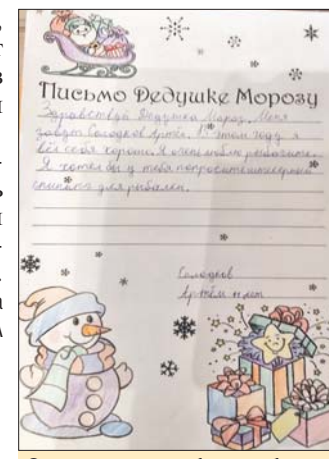 Письмо Дедушке Морозу
Здравствуй Дедушка Мороз. Меня
зовут Солодков Артём. В этом году я
вёл себя хорошо. Я очень люблю рыбачить.
Я хотел бы у тебя попросить
спининг для рыбалки.
Солодков
Артём лет